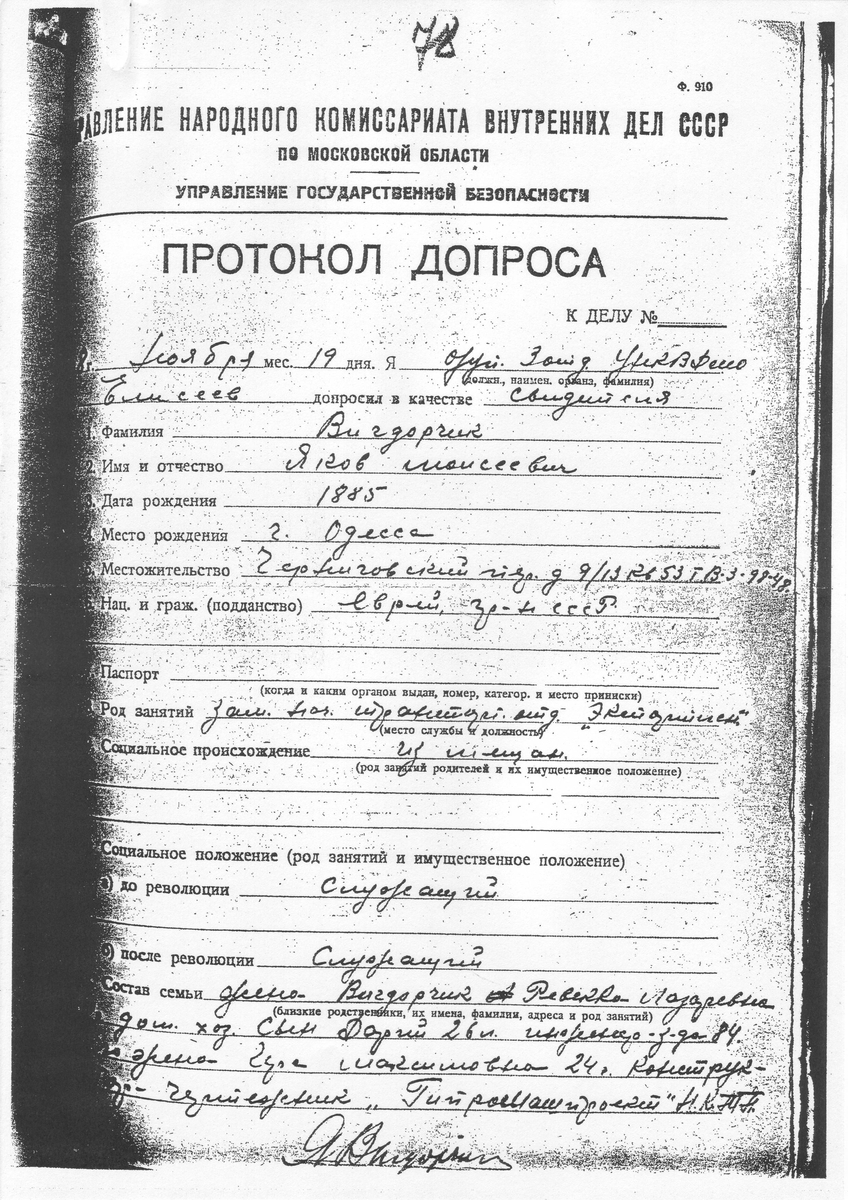 78
Ф. 910
РАВЛЕНИЕ НАРОДНОГО КОМИССАРИАТА ВНУТРЕННИХ ДЕЛ СССР
ПО МОСКОВСКОЙ ОБЛАСТИ
УПРАВЛЕНИЕ ГОСУДАРСТВЕННОЙ БЕЗОПАСНОСТИ
ПРОТОКОЛ ДОПРОСА
К ДЕЛУ №
ноября мес. 19 дня. Я
(должн., наимен. органа, фамилия)
Елисеев допросил в качестве свидетеля
1. Фамилия Вигдорчик
2. Имя и отчество Яков Моисеевич
3. Дата рождения 1885
4. Место рождения г. Одесса
5. Местожительство Черниговский пер. д 9/13 кв 53 Т В-3-98-48.
Нац. и граж. (подданство) Еврей, гр-н СССР
Паспорт
(когда и каким органом выдан, номер, категор. и место приписки)
Род занятий Зам. нач. транспорт. отд.
(место службы и должность)
Социальное происхождение из мещан.
(род занятий родителей и их имущественное положение)
Социальное положение (род занятий и имущественное положение)
а) до революции Служащий
б) после революции Служащий
Состав семьи жена Вигдорчик Ревекка Лазаревна
(близкие родственники, их имена, фамилия, адреса и род занятий)
дом. хоз. Сын 26 л. инженер з-да 84.
жена Максимовна 24 г. Конструк-
чертежник „Гипромашпроект"
ЯВигдорчик